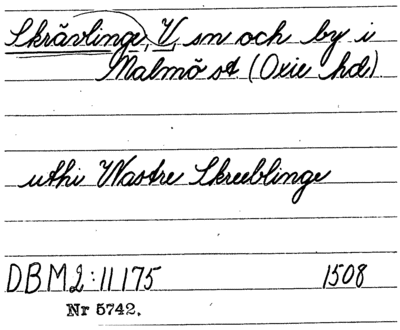 Skrävlinge, V, sn och by i
Malmö st (Oxie hd)
uthi Wastre Skreeblinge
DBM2:11175 1508
Nr 5742.